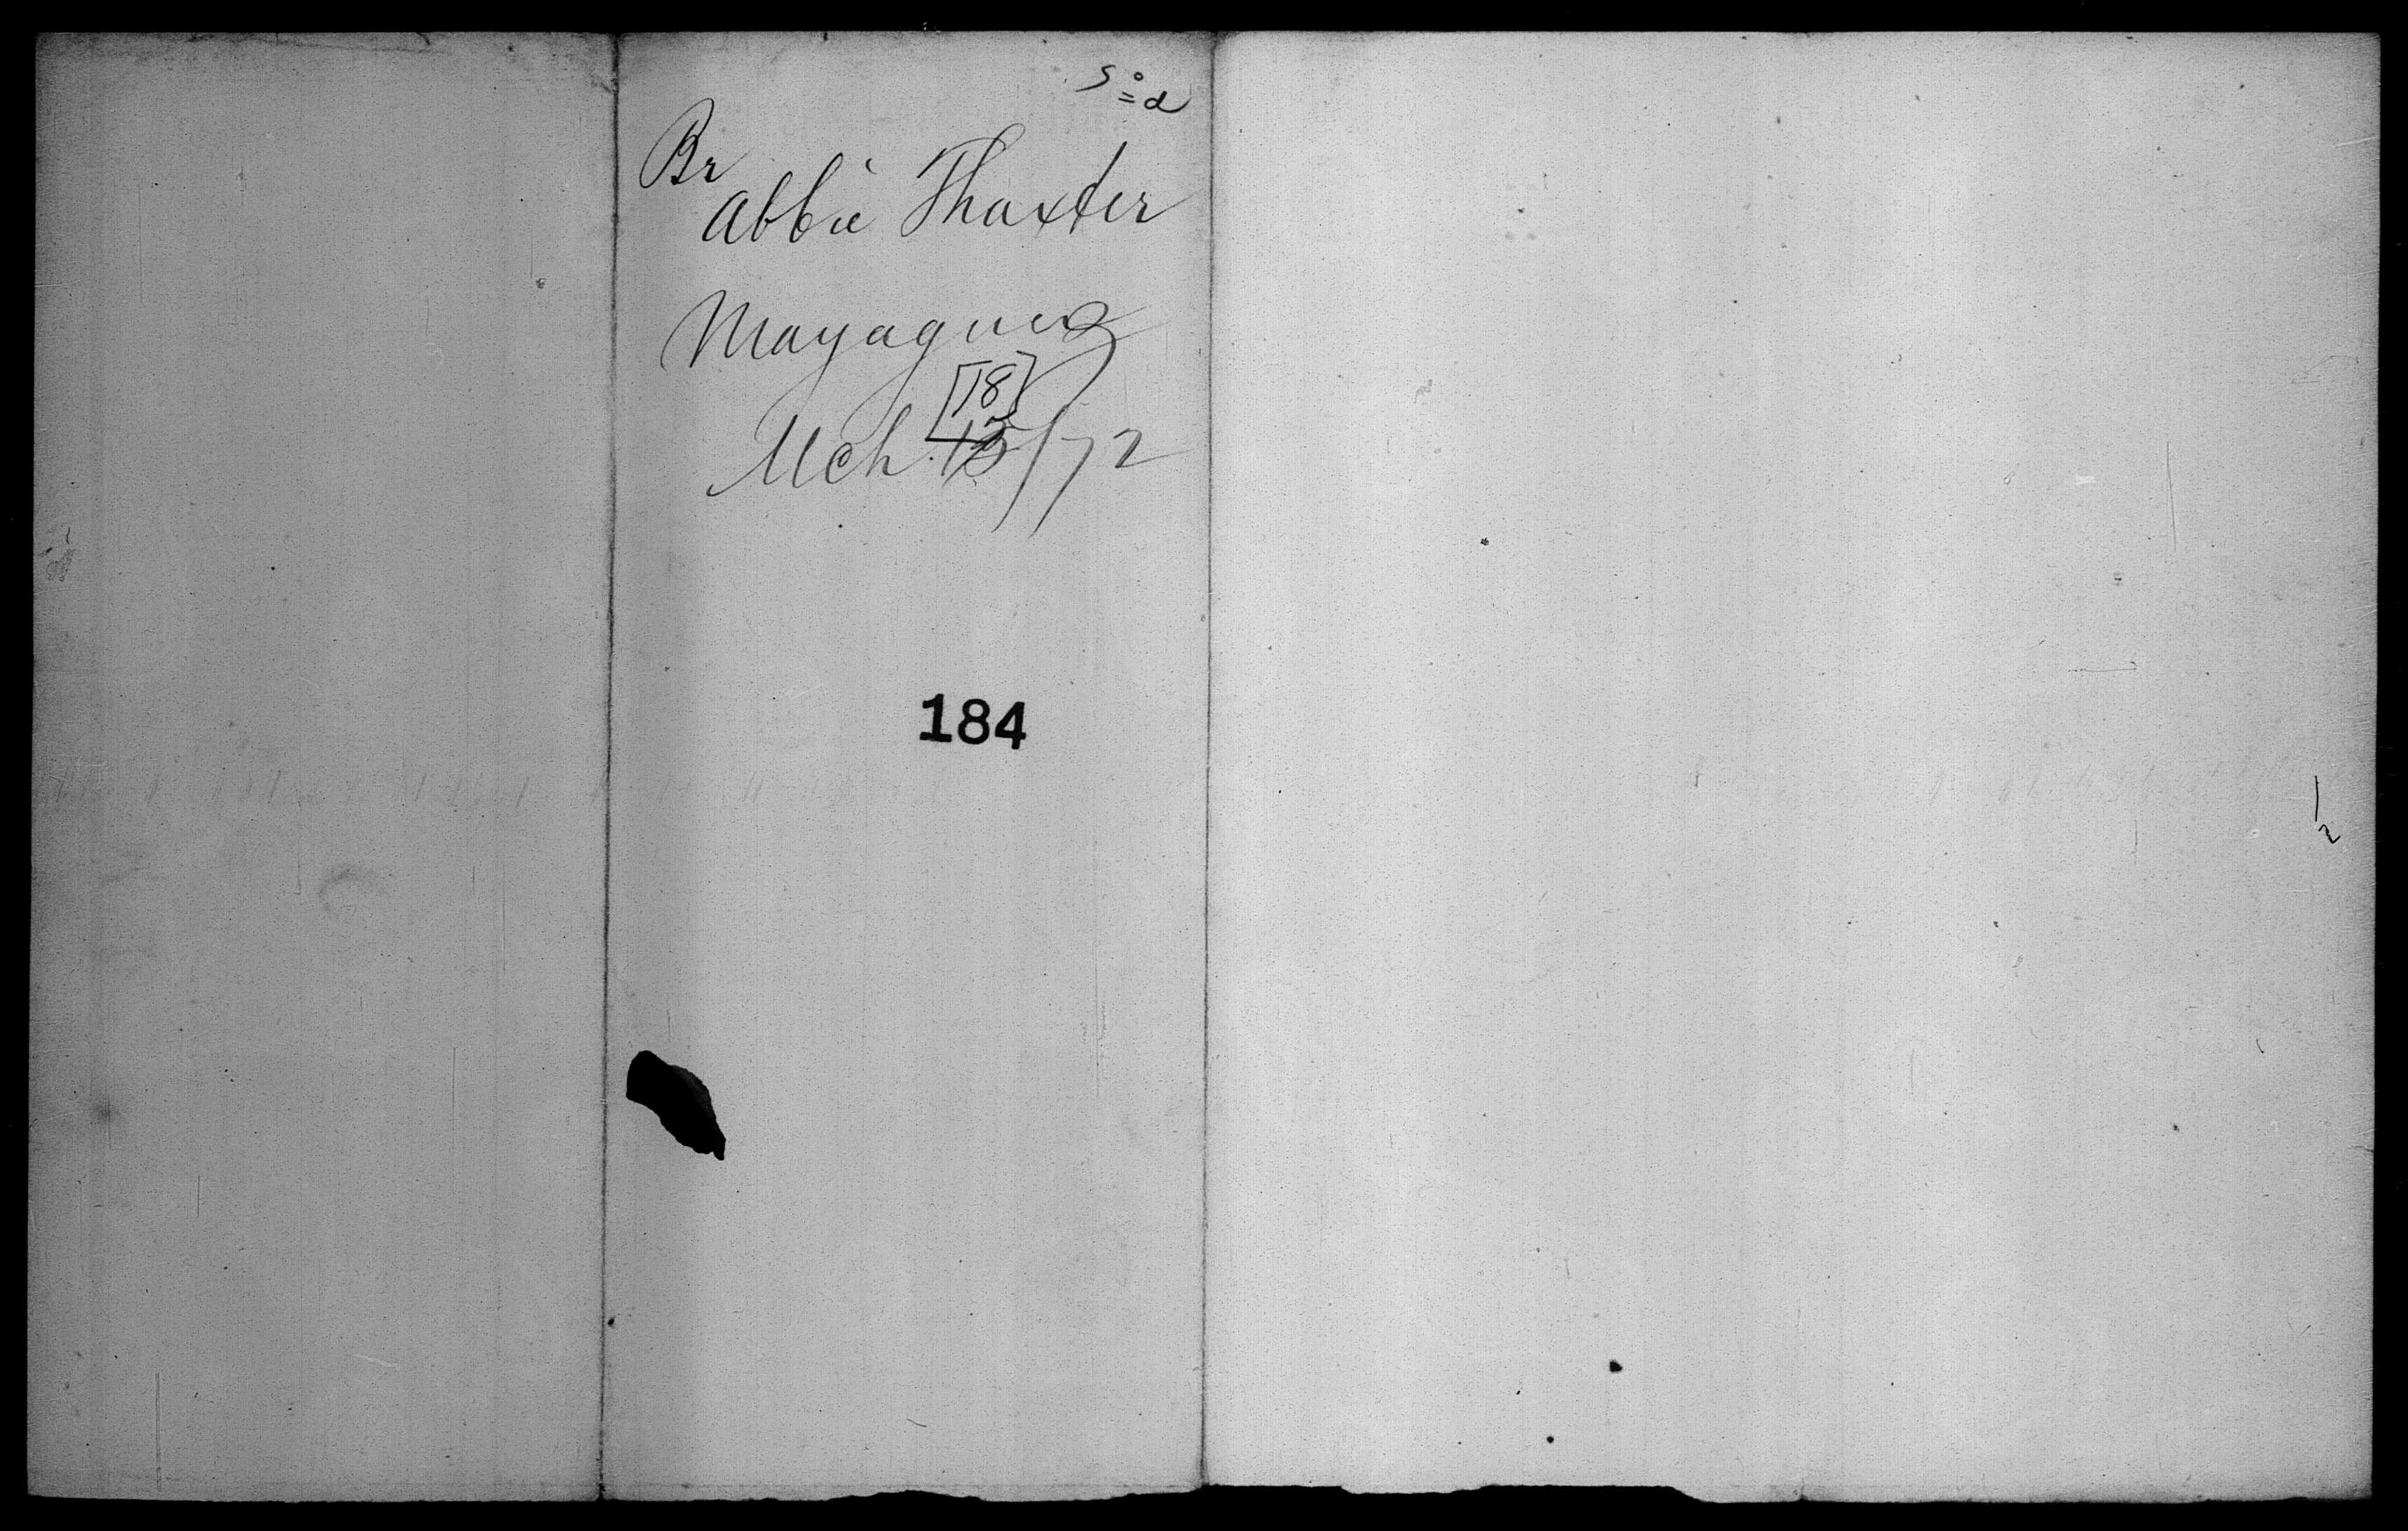 Br
Abbie Thaxter
Mayaguez
[18]
Mch. 13/72
184